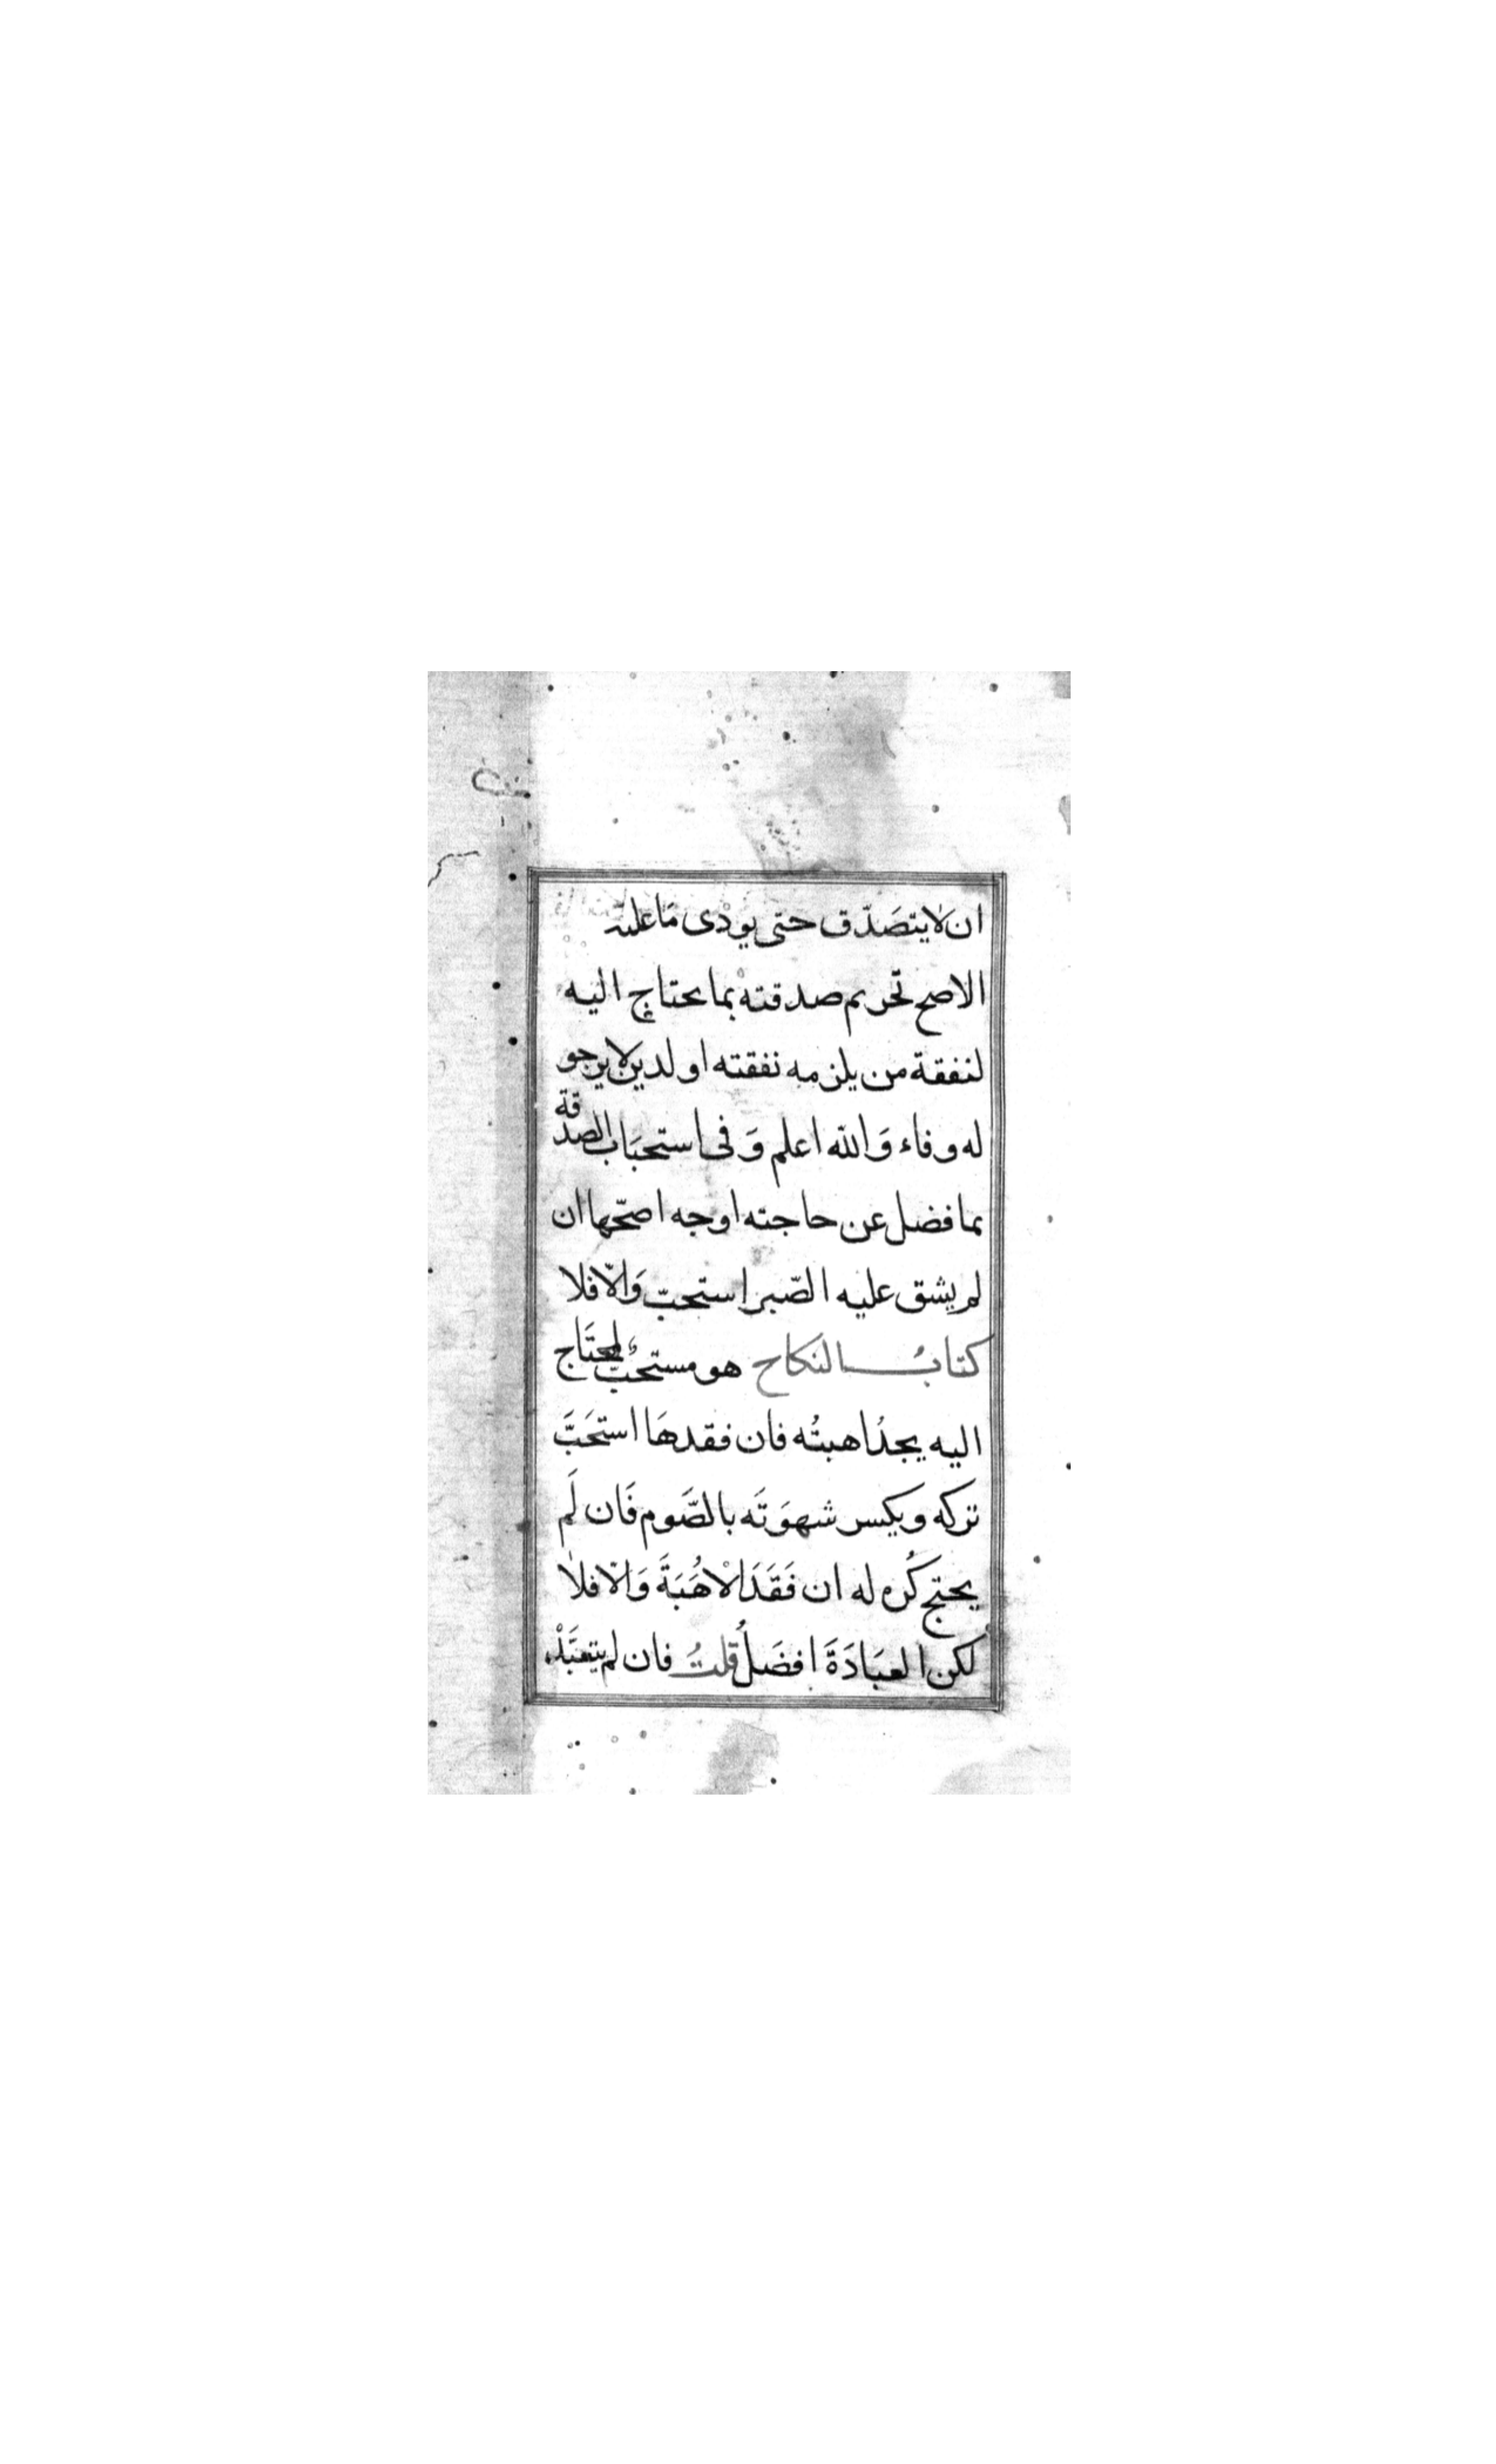 ان لا يتصَدّق حتى يودى مَا عليه
الاصح تحريم صدقته بما يحتاج اليه
لنفقة من يلزمه نفقته او لدين لا يرجو
له وفاء وَالله اعلم وَفى استحبَاب الصدقة
بما فضل عن حاجته اوجه اصحّها ان
لم يشق عليه الصّبر استحبّ وَالّا فلا
كتابُ النكاح هو مستحبٌّ لمحتَاج
اليه يجدُ اهبتُه فان فقدهَا استحَبَّ
تركه ويكسر شهوَتَه بالصَّوم فَان لَم
يحتج كُره له ان فَقَدَ الاهُبَةَ وَالّا فلا
لكن العبَادَةَ افضَلُ قلتُ فان لم يتعبَّدْ